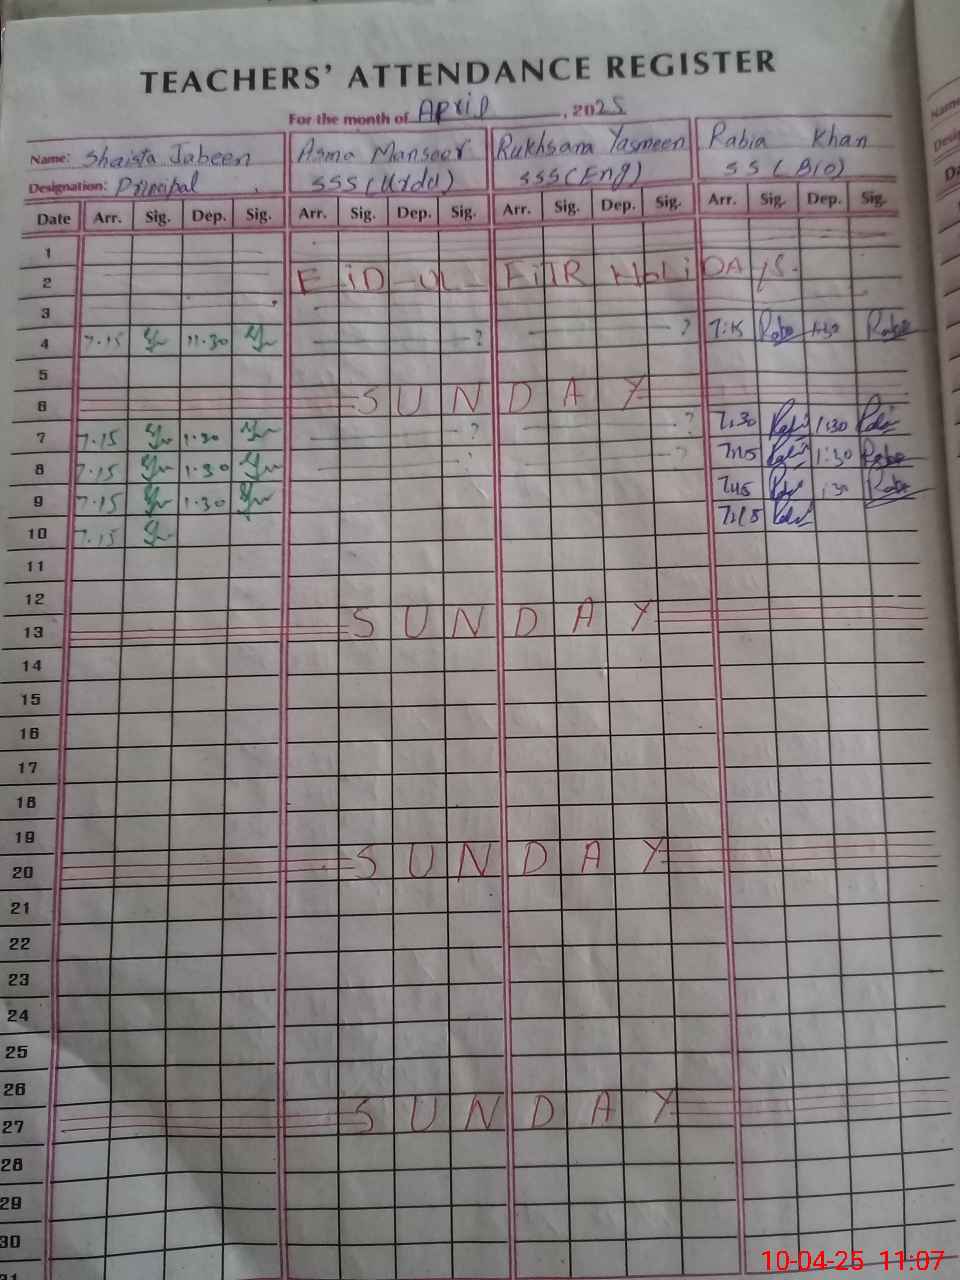 TEACHERS' ATTENDANCE REGISTER
For the month of April, 2025
Name: Shaista Jabeen Asma Mansoor Rukhsana Yasmeen Rabia Khan
Designation: Principal SSS (Urdu) SSS (Eng) SS (BIO)
Date Arr. Sig. Dep. Sig. Arr. Sig. Dep. Sig. Arr. Sig. Dep. Sig. Arr. Sig. Dep. Sig.
1
2 EiD-UL-FiTR HoLiDAYS.
3
4 7.15 11.30 ? ? 7:15
5
6 SUNDAY
7 7.15 1.30 ? ? 7:30 1:30
8 7.15 1.30 ? 1:30
9 7.15 1.30 1:30
10 7.15
11
12
13 SUNDAY
14
15
16
17
18
19
20 SUNDAY
21
22
23
24
25
26
27 SUNDAY
28
29
30
31
10-04-25 11:07